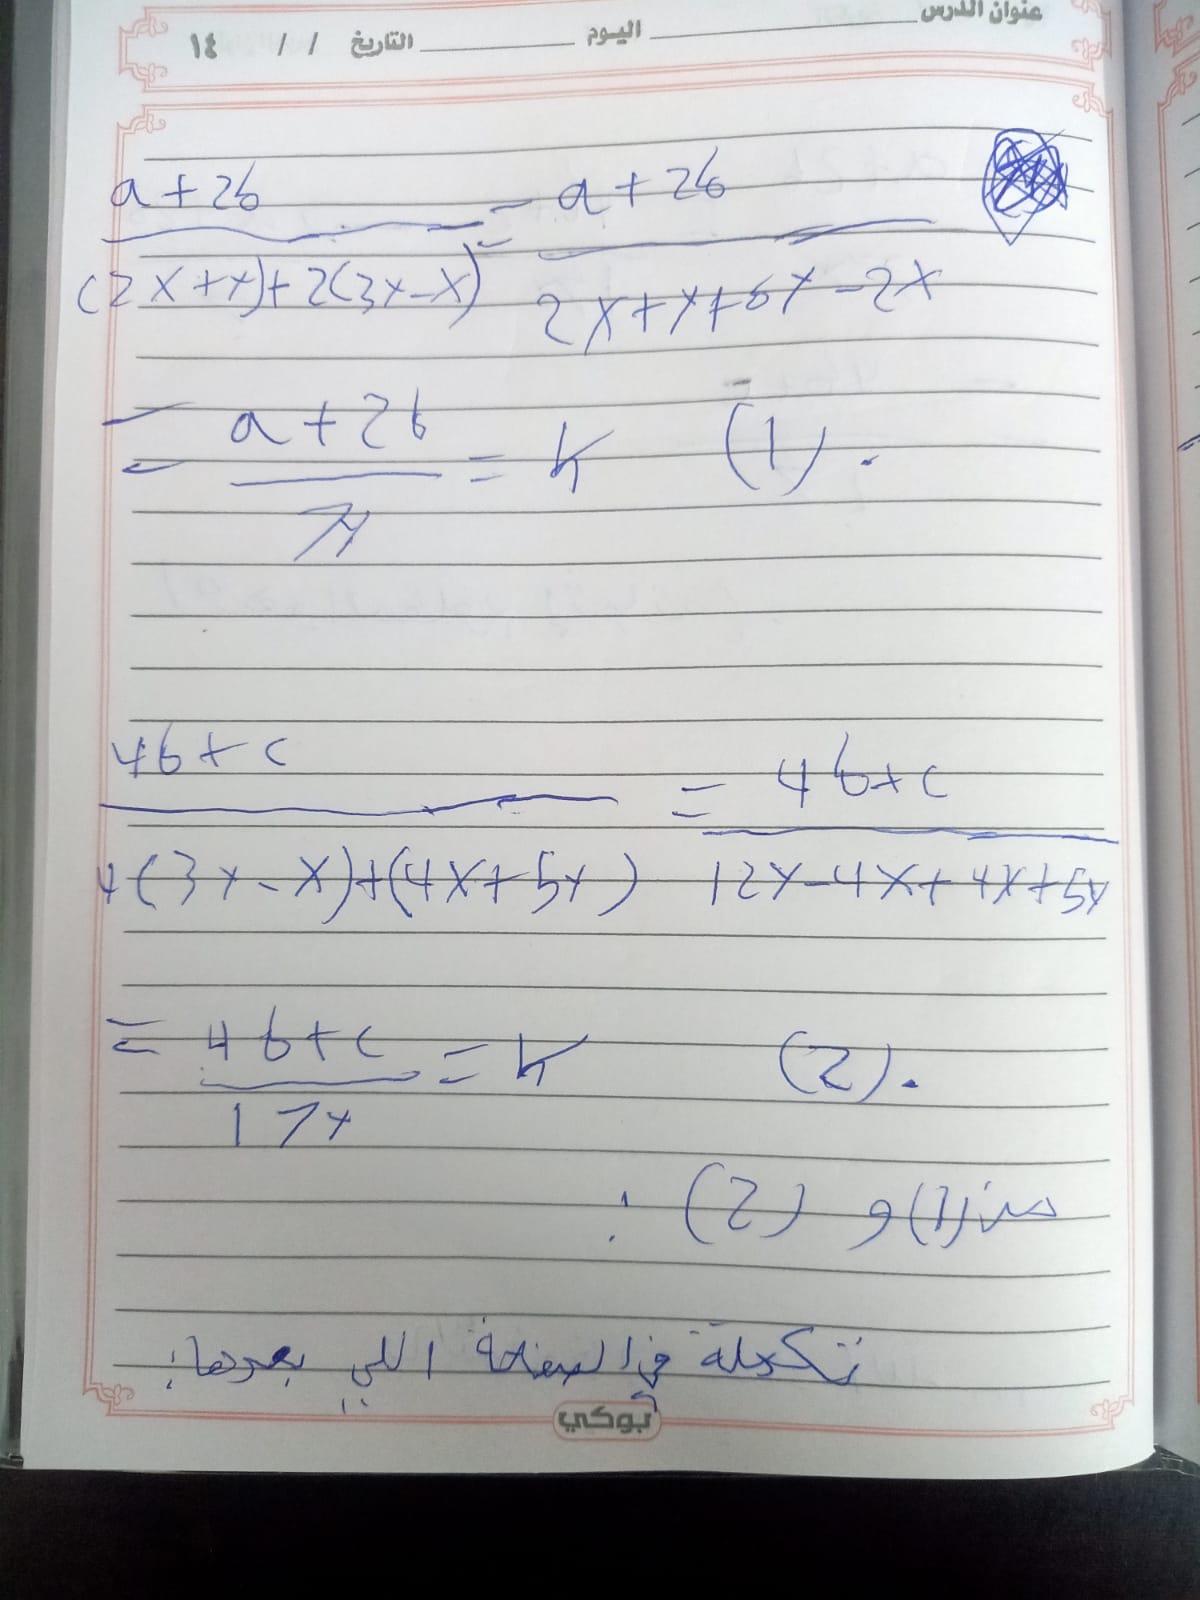 عنوان الدرس ____________ اليوم ________ التاريخ / / ١٤
a+2b = a+2b
(2x+y)+2(3y-x) 2x+y+6y-2x
= a+2b = k (1).
7y
4b+c = 4b+c
4(3y-x)+(4x+5y) 12y-4x+4x+5y
= 4b+c = k (2).
17y
من (1) و (2) :
تكملة في الصفحة اللي بعدها:
بوكي